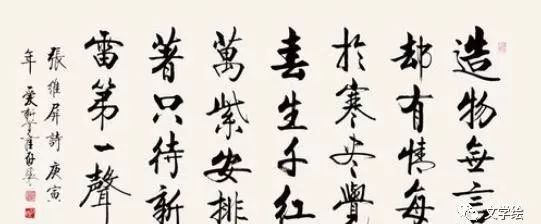 造物無言
却有情每
於寒尽覺
春生千紅
萬紫安排
著只待新
雷第一聲
張維屏詩庚寅
年
文学绘